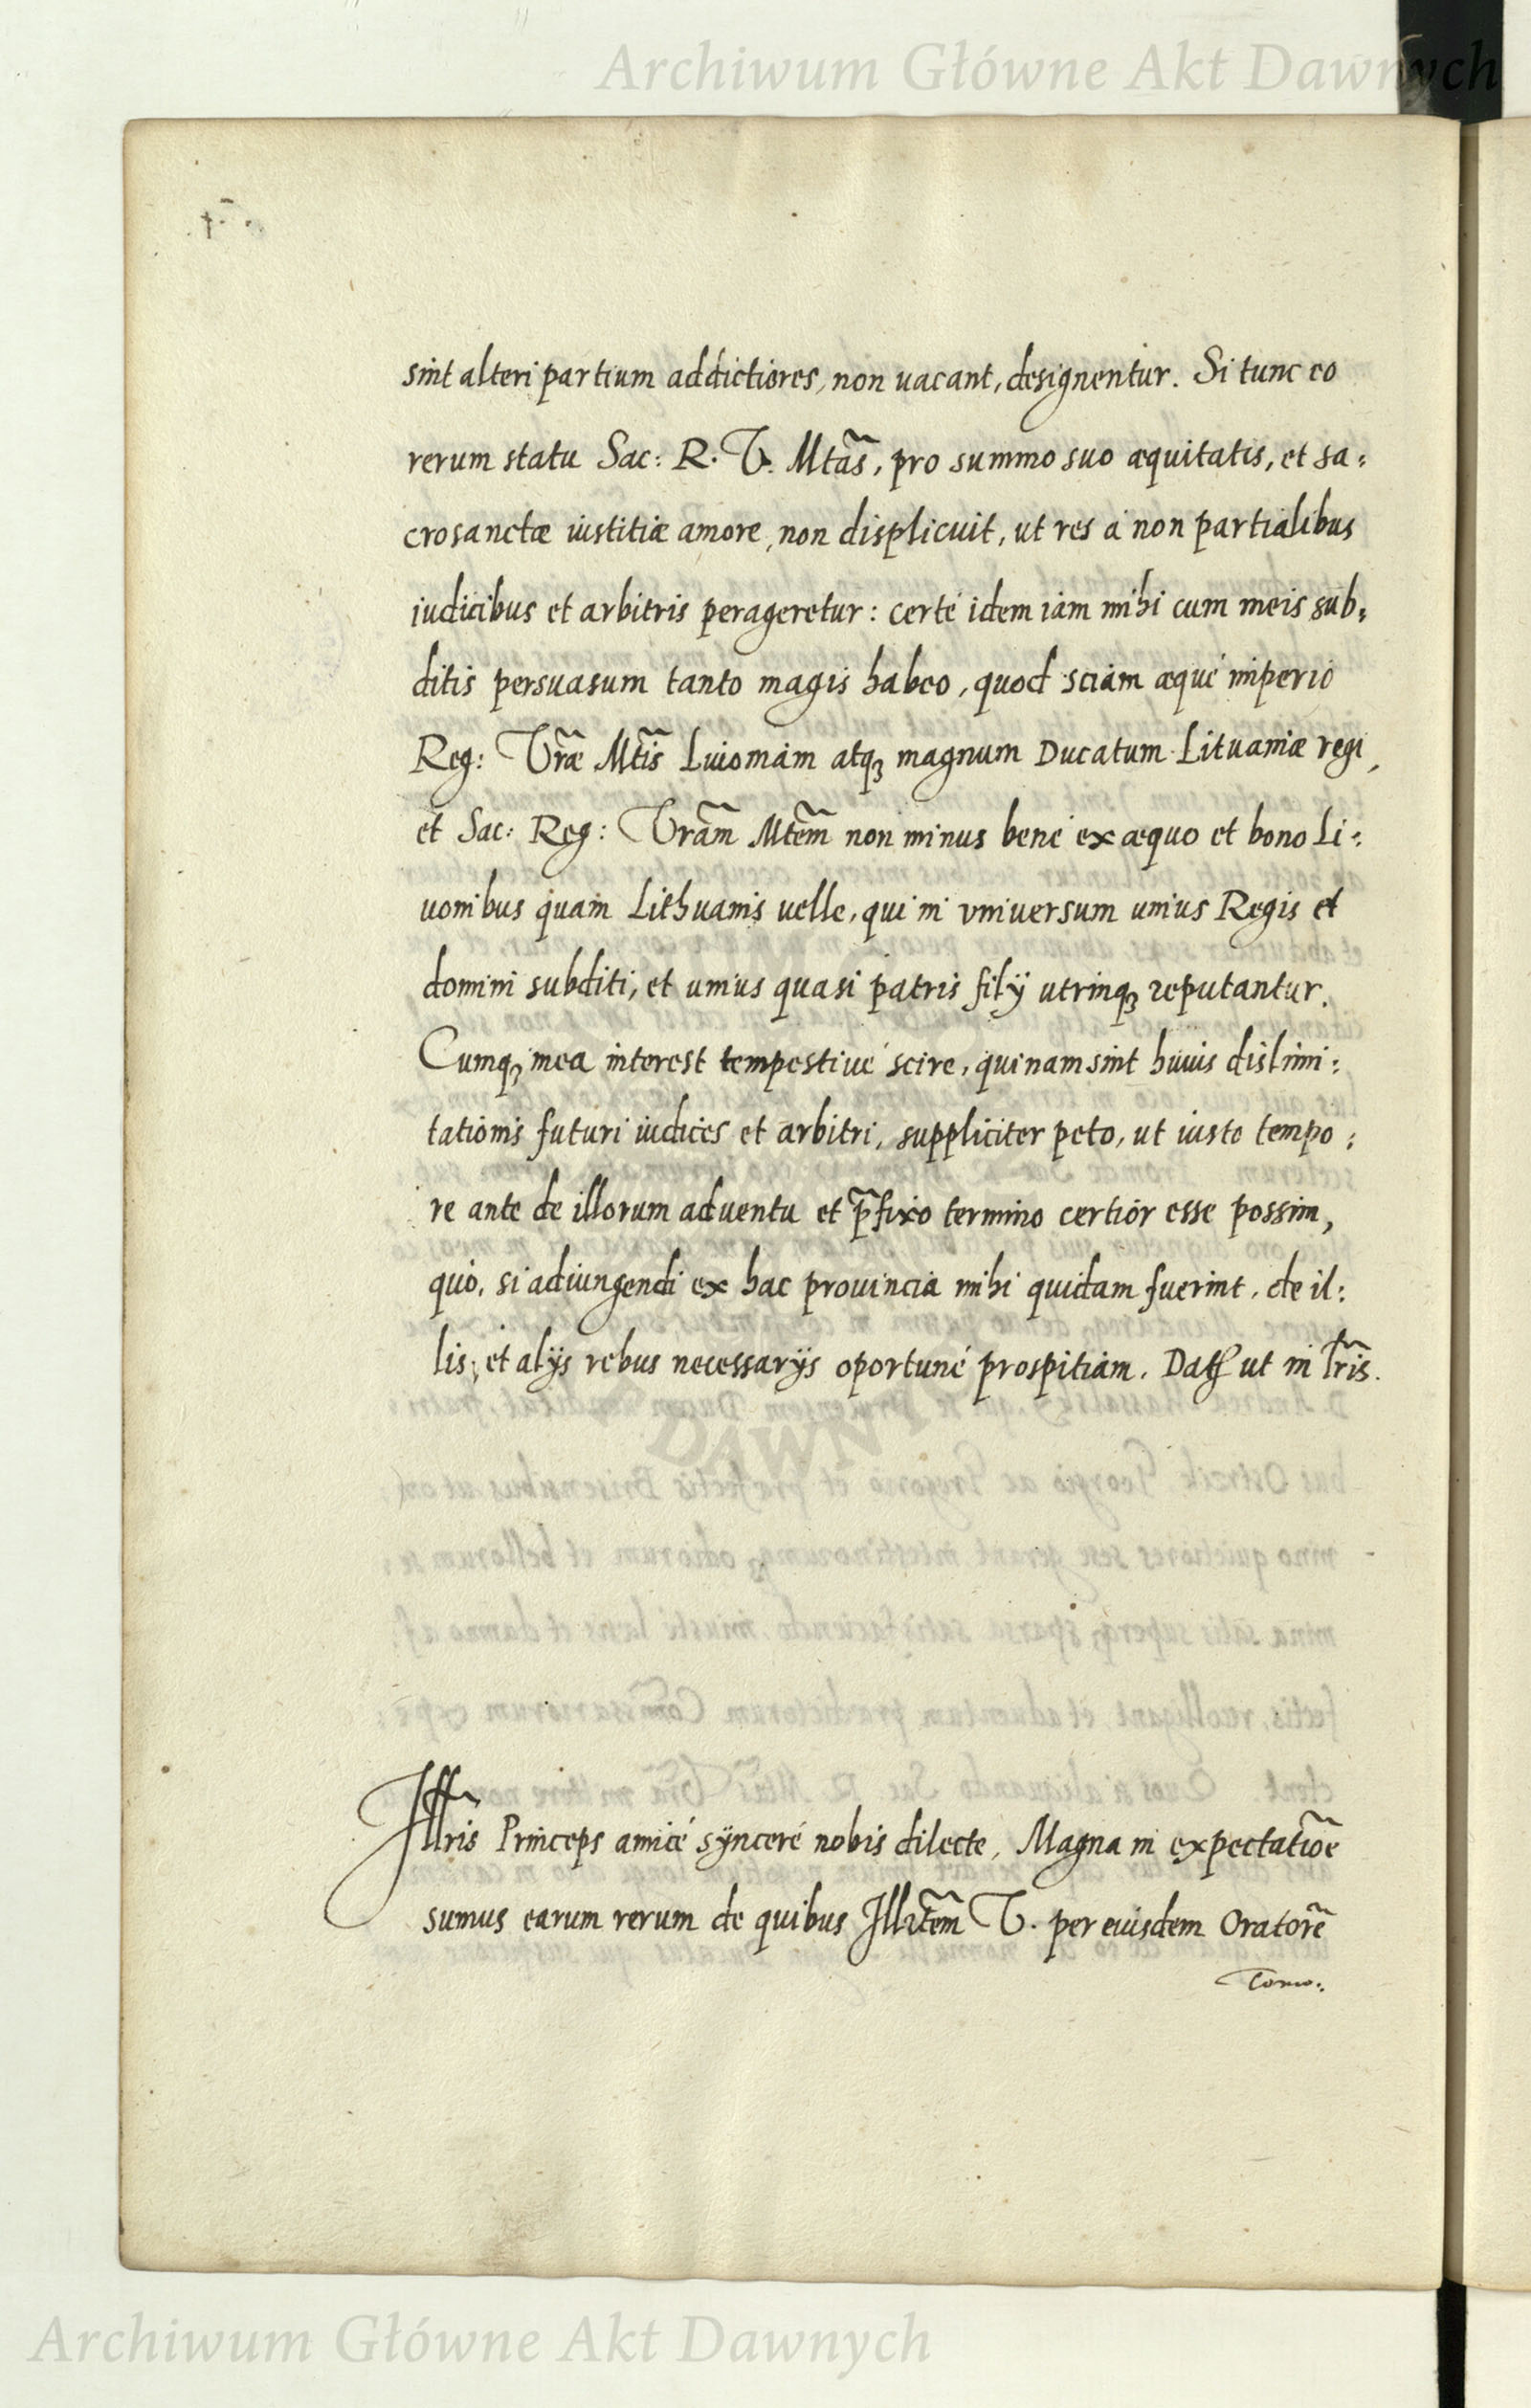 Archiwum Główne Akt Dawnych
sint alteri partium addictiores, non uacant, designentur. Si tunc eo
rerum statu Sac: R. V. Mtas̃, pro summo suo æquitatis, et sa:
crosanctæ iustitiæ amore, non displicuit, ut res à non partialibus
iudicibus et arbitris perageretur: certé idem iam mihi cum meis sub:
ditis persuasum tanto magis habeo, quod sciam æqué imperio
Reg: Vræ̃ Mtis̃ Liuoniam atqꝫ magnum Ducatum Lituaniæ regi,
et Sac: Reg: Vram̃ Mtem̃ non minus bené ex æquo et bono Li:
uonibus quam Lithuanis uelle, qui in vniuersum unius Regis et
domini subditi, et unius quasi patris filÿ utrinqꝫ reputantur.
Cumqꝫ mea interest tempestiué scire, quinam sint huius dislimi:
tationis futuri iudices et arbitri, suppliciter peto, ut iusto tempo:
re ante de illorum aduentu et p̃fixo termino certior esse possim,
quò, si adiungendi ex hac prouincia mihi quidam fuerint, de il:
lis, et alÿs rebus necessarÿs oportuné prospitiam. Datꝭ ut in lr̃is.
Illr̃is Princeps amicé sÿnceré nobis dilecte, Magna in expectatiõe
sumus earum rerum de quibus Illrtem̃ V. per euisdem Oratorẽ
DAWNYCH
Archiwum Główne Akt Dawnych